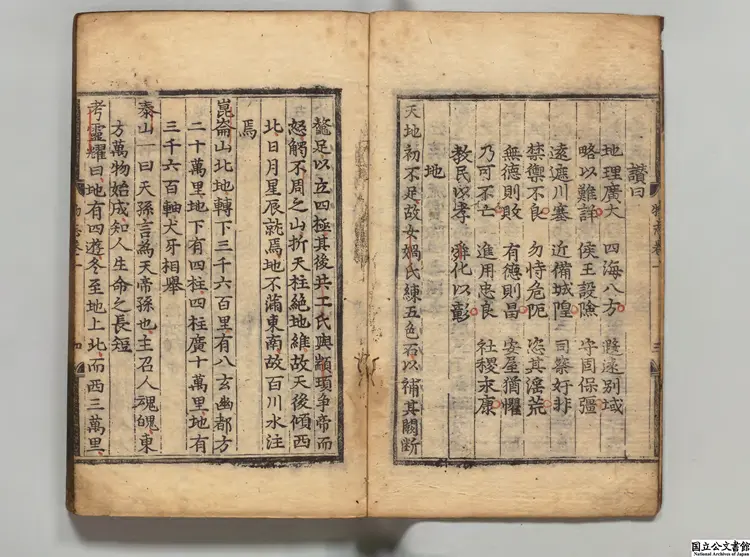 讃曰
地理廣大 四海八方 遐遠別域
略以難詳 侯王設險 守固保疆
遠遮川塞 近備城隍 司察奸非
禁禦不良 勿恃危阨 恣其淫荒
無德則敗 有德則昌 安屋猶懼
乃可不亡 進用忠良 社稷永康
教民以孝 舜化以彰
地
天地初不足故女媧氏練五色石以補其闕断
鼇足以立四極其後共工氏與顓頊争帝而
怒觸不周之山折天柱絶地維故天後傾西
北日月星辰就焉地不滿東南故百川水注
焉
崑崙山北地轉下三千六百里有八玄幽都方
二十萬里地下有四柱四柱廣十萬里地有
三千六百軸犬牙相舉
泰山一曰天孫言為天帝孫也主召人魂魄東
方萬物始成知人生命之長短
考靈耀曰地有四遊冬至地上北而西三萬里
国立公文書館
National Archives of Japan